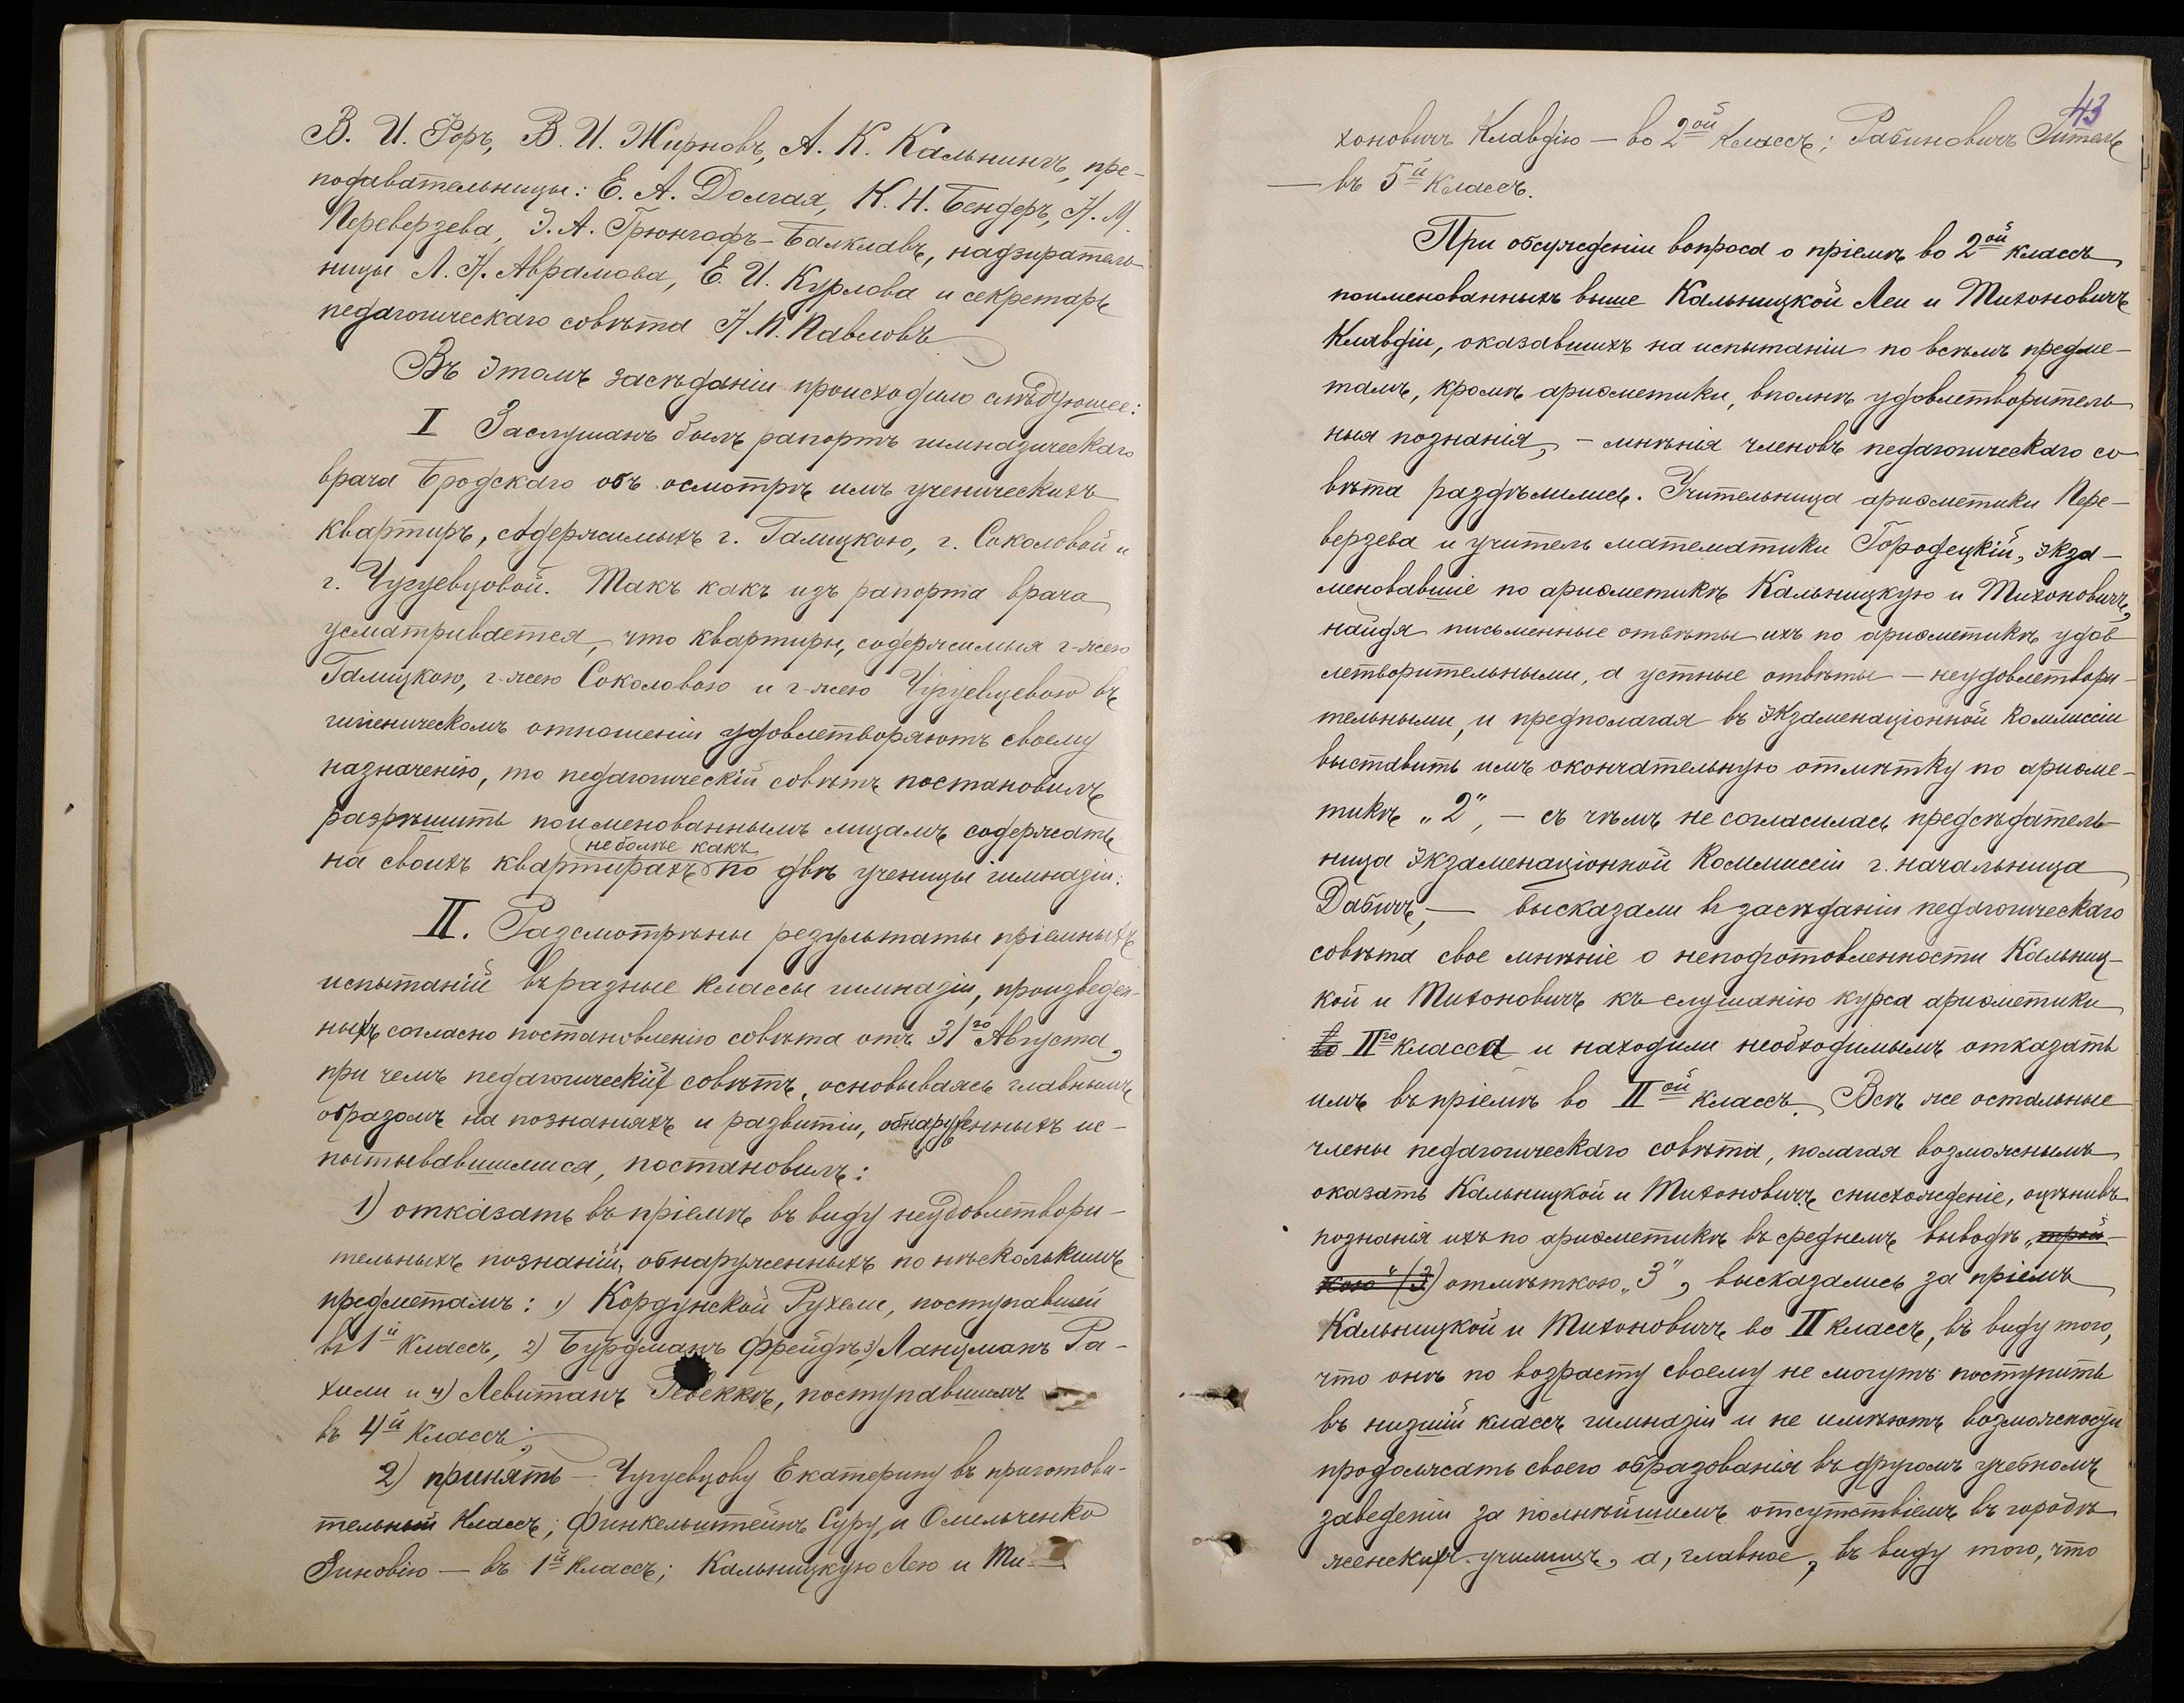 В. И. Форъ, В. И. Жирновъ, А. К. Кальнингъ, пре-
подавательницы: Е. А. Долгая, К. Н. Бендеръ, Н. М.
Переверзева, Э. А. Грюнгофъ-Балклавъ, надзиратель-
ницы Л. Н. Аврамова, Е. И. Курлова и секретарь
педагогическаго совѣта Н. П. Павловъ
Въ этомъ засѣданіи происходило слѣдующее:
I Заслушанъ былъ рапортъ гимназическаго
врача Бродскаго объ осмотрѣ имъ ученическихъ
квартиръ, содержимыхъ г. Галицкою, г. Соколовой и
г. Чугуевцовой. Такъ какъ изъ рапорта врача
усматривается, что квартиры, содержимыя г-жею
Галицкою, г-жею Соколовою и г-жею Чугуевцевою въ
гигіеническомъ отношеніи удовлетворяютъ своему
назначенію, то педагогическій совѣтъ постановилъ
разрѣшить поименованнымъ лицамъ содержать
не болѣе какъ
на своихъ квартирахъ по двѣ ученицы гимназіи.
II. Разсмотрѣны результаты пріемныхъ
испытаній въ разные классы гимназіи, произведен-
ныхъ согласно постановленію совѣта отъ 31го Августа,
при чемъ педагогическій совѣтъ, основываясь главнымъ
образомъ на познаніяхъ и развитіи, обнаруженныхъ ис-
пытывавшимися, постановилъ:
1) отказать въ пріемѣ въ виду неудовлетвори-
тельныхъ познаній, обнаруженныхъ по нѣсколькимъ
предметамъ: 1) Кордунской Рухели, поступавшей
въ 1й классъ, 2) Бурдманъ Фрейдѣ, 3) Ланцманъ Ра-
хили и 4) Левитанъ Ревеккѣ, поступавшимъ
въ 4й классъ;
2) принять - Чугуевцову Екатерину въ приготови-
тельный классъ; Финкельштейнъ Суру и Омельченко
Зиновію — въ 1й классъ; Кальницкую Лею и Ти-
43
хоновичъ Клавдію — во 2ой классъ; Рабиновичъ Гитель
— въ 5й классъ.
При обсужденіи вопроса о пріемѣ во 2ой классъ
поименованныхъ выше Кальницкой Леи и Тихоновичъ
Клавдіи, оказавшихъ на испытаніи по всѣмъ предме-
тамъ, кромѣ ариѳметики, вполнѣ удовлетворитель
ныя познанія, — мнѣнія членовъ педагогическаго со
вѣта раздѣлились. Учительница ариѳметики Пере-
верзева и учитель математики Городецкій, экза-
меновавшіе по ариѳметикѣ Кальницкую и Тихоновичъ,
найдя письменные отвѣты ихъ по ариѳметикѣ удов
летворительными, а устные отвѣты — неудовлетвори-
тельными, и предполагая въ экзаменаціонной коммиссіи
выставить имъ окончательную отмѣтку по ариѳме-
тикѣ „2", — съ чѣмъ не согласилась предсѣдатель-
ница экзаменаціонной коммиссіи г. начальница
Дабичъ, — высказали въ засѣданіи педагогическаго
совѣта свое мнѣніе о неподготовленности Кальниц-
кой и Тихоновичъ къ слушанію курса ариѳметики
во IIго класса и находили необходимымъ отказать
имъ въ пріемѣ во IIой классъ. Всѣ же остальные
члены педагогическаго совѣта, полагая возможнымъ
оказать Кальницкой и Тихоновичъ снисхожденіе, оцѣнивъ
познанія ихъ по ариѳметикѣ въ среднемъ выводѣ „трой-
кою" (3) отмѣткою „3", высказались за пріемъ
Кальницкой и Тихоновичъ во II классъ, въ виду того,
что онѣ по возрасту своему не могутъ поступить
въ низшій классъ гимназіи и не имѣютъ возможности
продолжать своего образованія въ другомъ учебномъ
заведеніи за полнѣйшимъ отсутствіемъ въ городѣ
женскихъ училищъ, а, главное, въ виду того, что